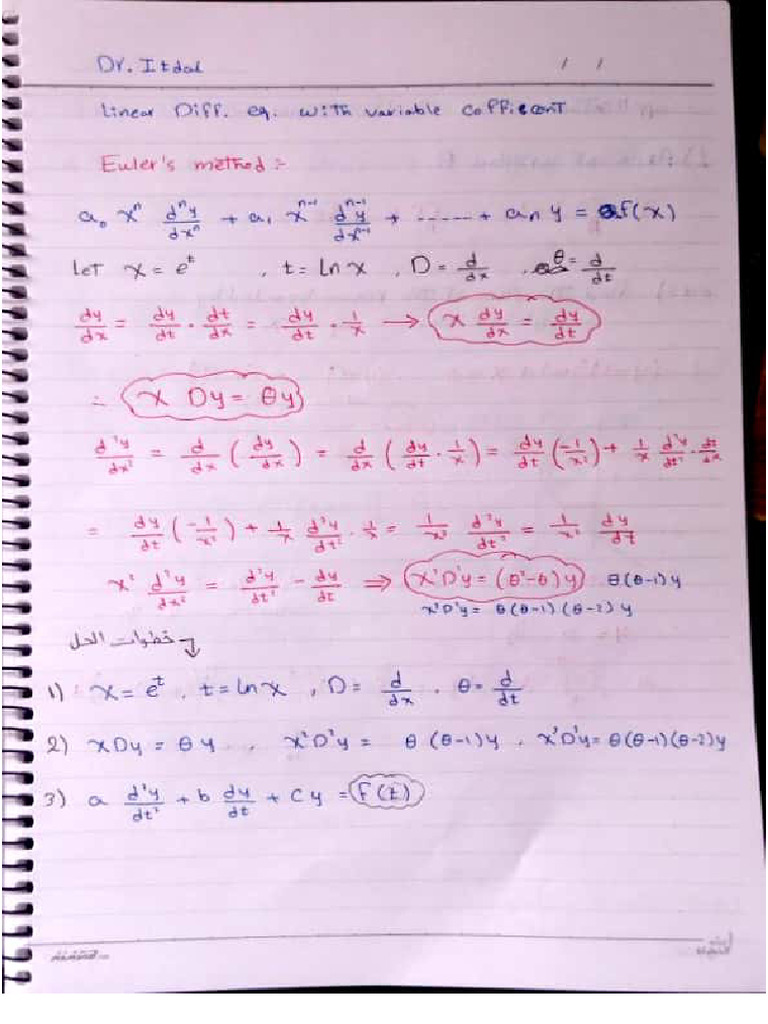 Dr. Itdal / /
Linear Diff. eq. with variable cofficent
Euler's method :-
a₀ xⁿ dⁿy/dxⁿ + a₁ xⁿ⁻¹ dⁿ⁻¹y/dxⁿ⁻¹ + ...... + aₙ y = f(x)
Let x = eᵗ , t = ln x , D = d/dx , θ = d/dt
dy/dx = dy/dt · dt/dx = dy/dt · 1/x → x dy/dx = dy/dt
∴ x Dy = θy
d²y/dx² = d/dx (dy/dx) = d/dx (dy/dt · 1/x) = dy/dt (-1/x²) + 1/x d²y/dt² · dt/dx
= dy/dt (-1/x²) + 1/x d²y/dt² · 1/x = 1/x² d²y/dt² = 1/x² dy/dt
x² d²y/dx² = d²y/dt² - dy/dt ⇒ x²D²y = (θ²-θ)y θ(θ-1)y
x³D³y = θ(θ-1)(θ-2)y
خطوات الحل
1) x = eᵗ , t = ln x , D = d/dx , θ = d/dt
2) xDy = θy , x²D²y = θ(θ-1)y , x³D³y = θ(θ-1)(θ-2)y
3) a d²y/dt² + b dy/dt + Cy = f(t)